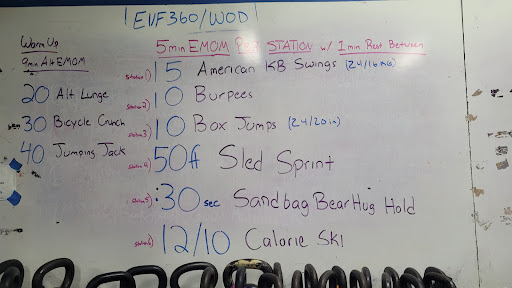 EVF360/WOD
Warm Up
9min Alt EMOM
20 Alt Lunge
30 Bicycle Crunch
40 Jumping Jack
5min EMOM Per STATION w/ 1 min Rest Between
Station 1) 15 American KB Swings (24/16 KG)
Station 2) 10 Burpees
Station 3) 10 Box Jumps (24/20 in)
Station 4) 50ft Sled Sprint
Station 5) :30 sec Sandbag Bear Hug Hold
Station 6) 12/10 Calorie Ski